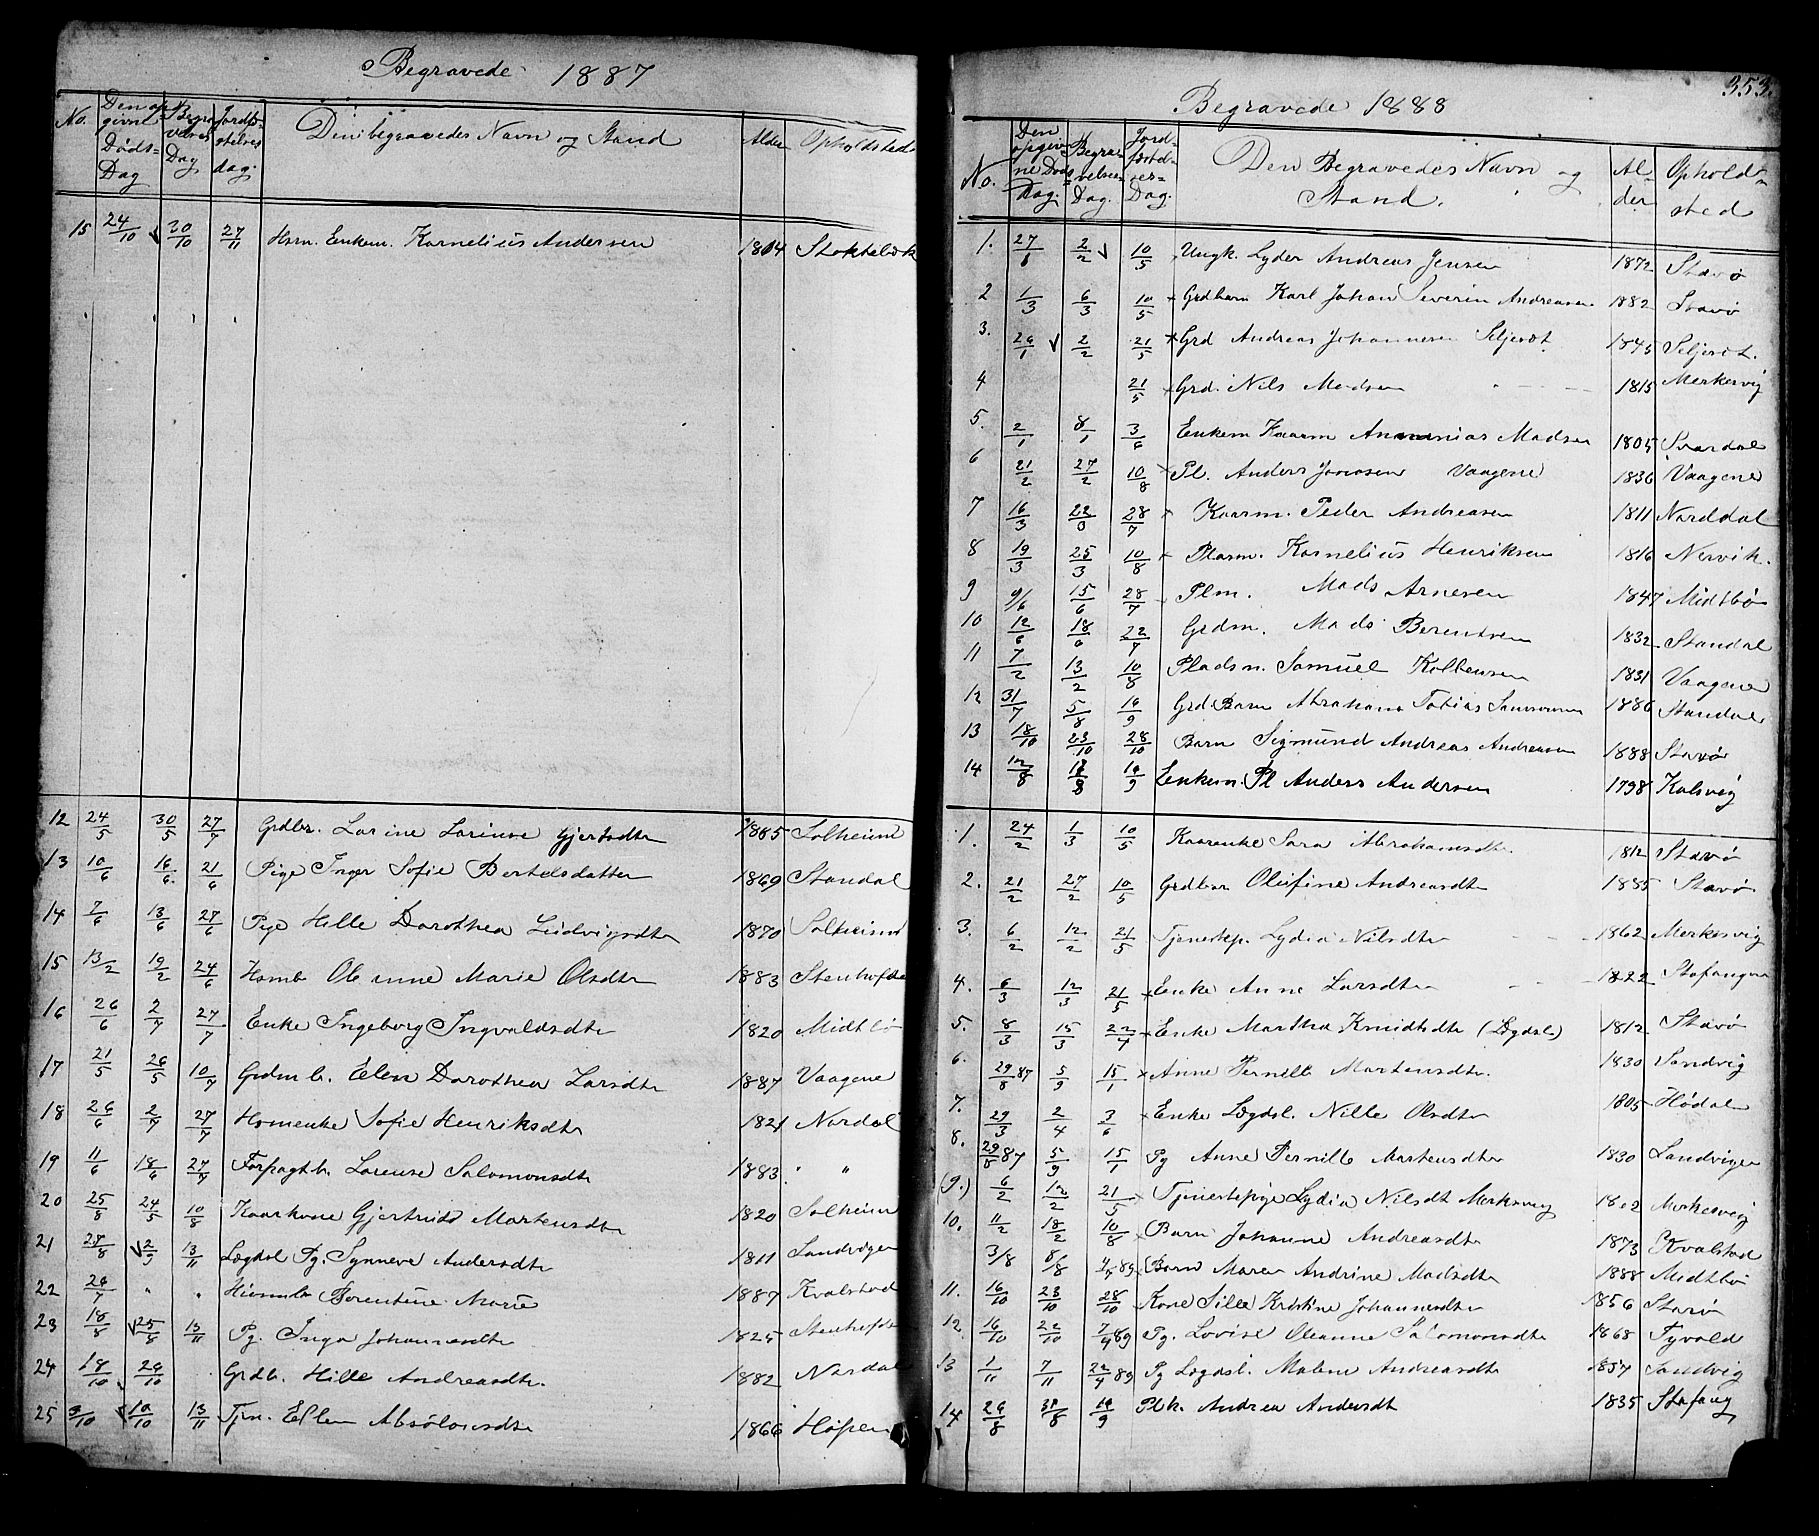 Begravede 1887
No. Den opgivne Døds-Dag Begravelses Dag Jordfæstelses dag. Den begravedes Navn og Stand Alder Opholdsted
15 24/10 30/10 27/11 Hsm. Enkem. Kornelius Andersen 1814
12 24/5 30/5 27/7 Grdbr. Larine Lorense Gjertsdtr 1885 Solheim
13 10/6 16/6. 21/6 Pige Inger Sofie Bertelsdatter 1869 Standal
14 7/6 13/6 27/6 Pige Hille Dorothea Ludvigsdtr 1870 Solheim
15 13/2 19/2 24/6 Hsmb Oleanne Marie Olsdtr 1883
16 26/6 2/7 27/7 Enke Ingeborg Ingvaldsdtr 1820 Midtbø
17 21/5 26/5 10/7 Grdm b. Elen Dorothea Larsdtr 1887 Vaagene
18 26/6 2/7 27/7 Hsmenke Sofie Henriksdtr 1821 Nordal
19 11/6 18/6 27/7 Forpagtb. Lorense Salomonsdtr 1883 " "
20 25/8 24/5 10/8 Kaarkone Gjertrud Mortensdtr 1820 Solheim
21 27/8 2/9 13/11 Lægdsl Pg. Synneve Andersdtr 1811 Sandvigen
22 " " Florentine Marie 1887 Kvalstad
23 18/8 25/8 13/11 Pg. Inga Johannesdtr 1825
24 18/10 26/10 Grdb. Hille Andreasdtr. 1882 Nordal
25 3/10 10/10 13/11 Tjn. Ellen Absolonsdtr 1866 Høpen
353.
Begravede 1888
No. Den opgivne Døds Dag. Begravelses Dag. Jordfæstelses-Dag. Den Begravedes Navn og Stand. Alder Opholdssted
1. 27/1 2/2 10/5 Ungk. Lyder Andreas Jensen 1872 Stavø
2 1/3 6/3 10/5 Grdbarn Karl Johan Severin Andreasen 1882 Stavø
3. 26/1 2/2 21/5 Grd Andreas Johannesen Seljesæt 1845 Seljesæt.
4 21/5 Grd. Nils Madsen 1815 Merkesvig
5. 2/1 8/1 3/6 Enkem Kaarm Ananias Madsen 1805
6 21/2 27/2 10/8 Pl. Anders Jonasen Vaagene 1836 Vaagene
7 16/3 22/3 28/7 Kaarm. Peder Andreasen 1811 Norddal
8 19/3 25/3 10/8 Plasm. Kornelius Henriksen 1816 Nervik.
9 9/6 15/6 28/7 Plm. Mads Arnesen 1847 Midtbø
10 12/6 18/6 22/7 Grdm. Mads Berentsen 1832 Standal
11 7/2 13/2 10/8 Pladsm. Samuel Kolbensen 1831 Vaagene
12 31/7 5/8 16/9 Grd. Barn Abraham Tobias Samsonsen 1886 Standal
13 18/10 23/10 28/10 Barn Sigmund Andreas Andreasen 1888 Stavø
14 12/8 18/8 16/9 Enkem. Pl Anders Andersen 1798 Kalsvig
1. 24/2 1/3 10/5 Kaarenke Sara Abrahamsdtr. 1812 Stavø
2. 21/2 27/2 10/5 Grdbar Olufine Andreasdtr 1885 Stavø
3. 6/2 12/2 21/5 Tjenestep. Lydia Nilsdtr 1862 Merkesvig
4. 6/3 12/3 21/5 Enke Anne Larsdtr 1822 Stafangen
5. 8/3 15/3 22/4 Enke Martha Knudsdtr (Lægdsl) 1812 Stavø
6. 29/8 87 5/9 15/1 Anne Pernille Martensdtr. 1830 Sandvig
7. 29/3 2/4 3/6 Enke Lægdsl. Nille Olsdtr 1805 Hødal
8. 29/8 87 5/9 15/1 Pg Anne Pernille Martensdtr 1830 Sandvigen
(9.) 6/2 12/2 21/5 Tjenestepige Lydia Nilsdt Merkesvig 1862 Merkesvig
10. 11/2 18/2 10/8 Barn Johanne Andreasdtr 1873 Kvalstad
3/8 8/8 7/4 89 Barn Maren Andrine Madsdtr 1888 Midtbø
11. 16/10 23/10 28/10 Kone Sille Kristine Johannesdtr 1856 Stavø
12. 16/10 22/10 7/4 89 Pg. Lovise Oleanne Salomonsdtr 1868 Tyvold
13 1/11 7/11 22/4 89 Pg Lægdsl. Malene Andreasdtr 1857 Sandvig
14 26/8 31/8 16/9 Plk. Andrea Andersdt 1835 Stafang